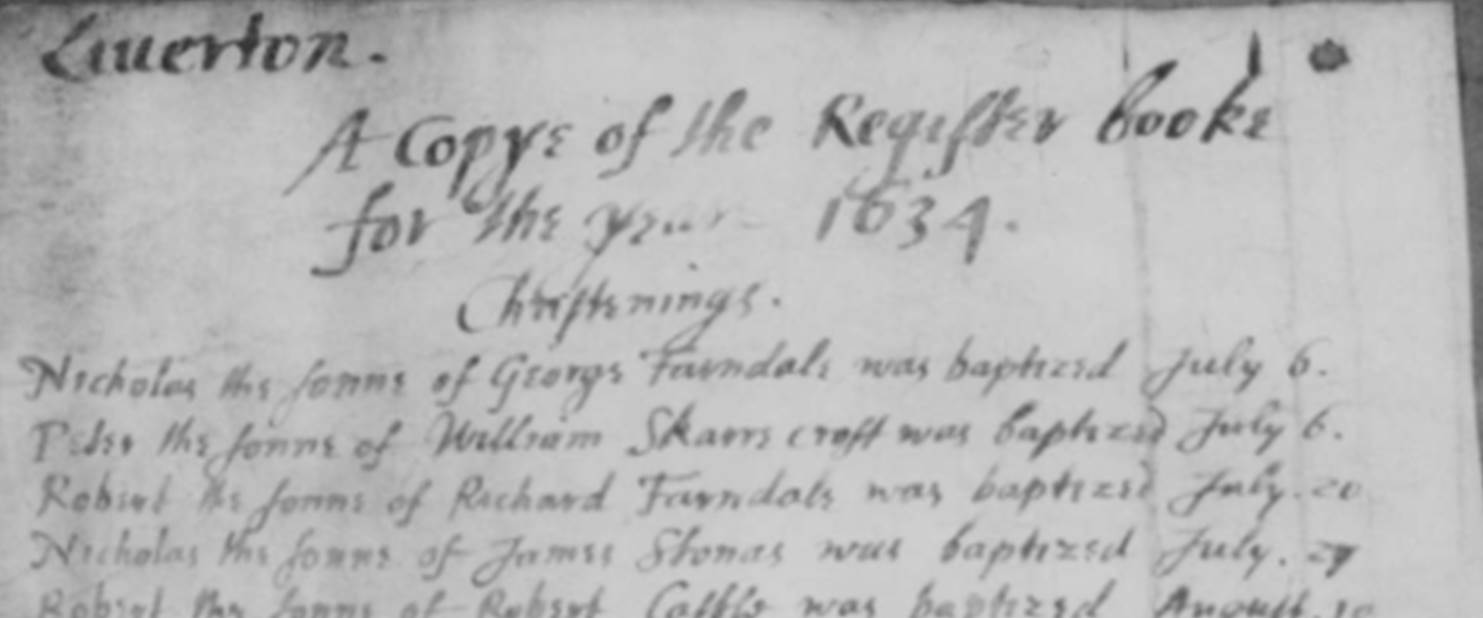 Liuerton.
A Copye of the Register booke
for the year 1634.
Christenings.
Nicholas the sonne of George Farndale was baptized July 6.
Peter the sonne of William Skarrs croft was baptized July 6.
Robert the sonne of Richard Farndale was baptized July. 20
Nicholas the sonne of James Stonas was baptized July. 27
Robert the sonne of Robert was baptized August. 10